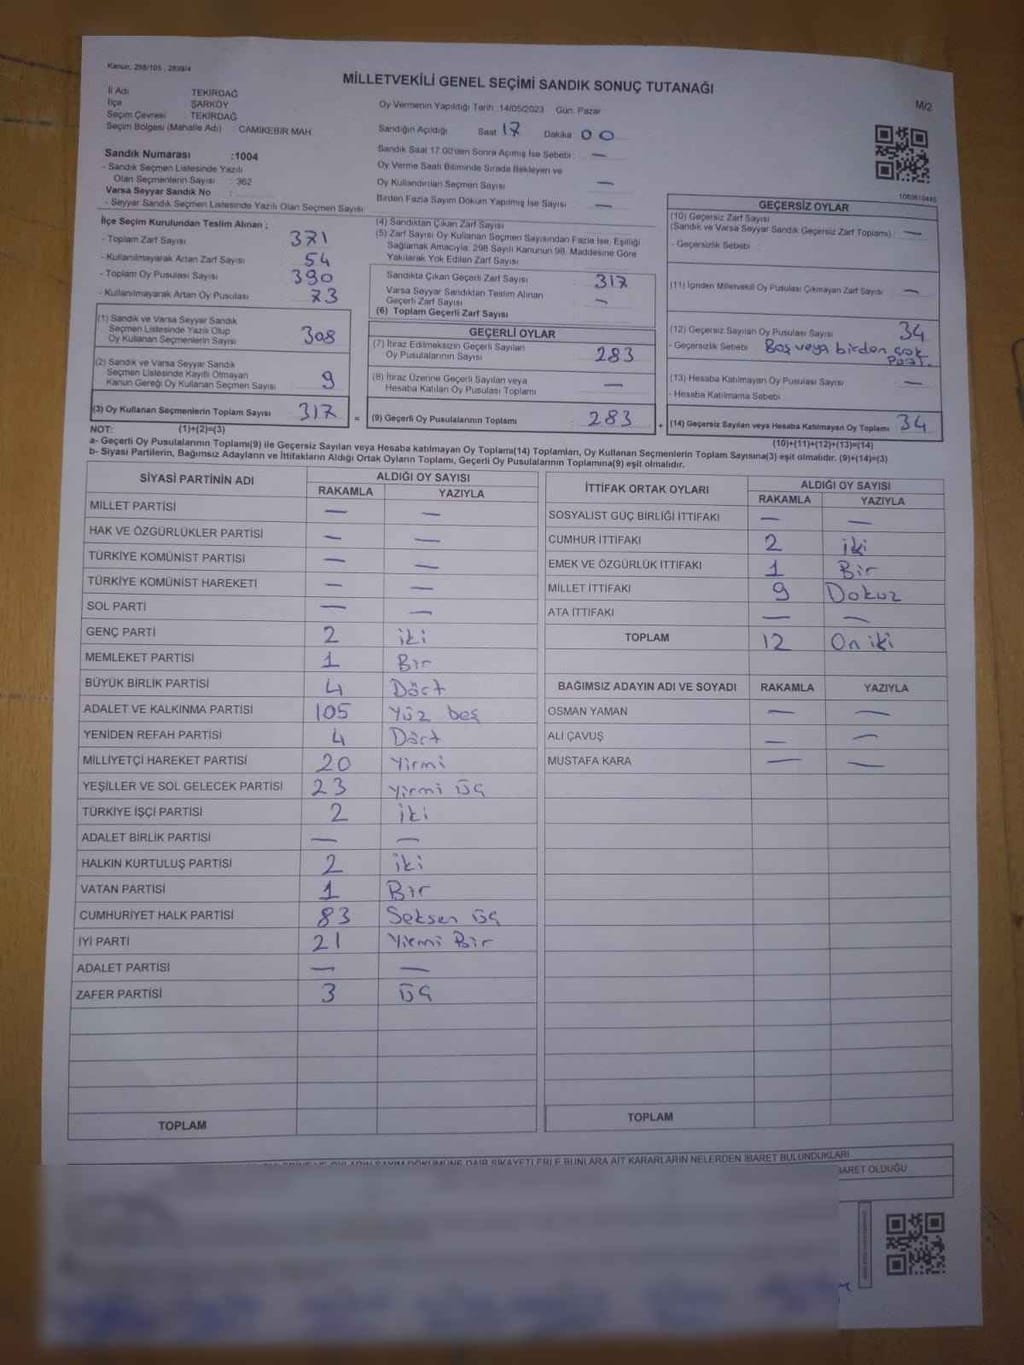 Kanun: 298/105 , 2839/4
MİLLETVEKİLİ GENEL SEÇİMİ SANDIK SONUÇ TUTANAĞI
M/2
İl Adı TEKİRDAĞ
İlçe ŞARKÖY
Seçim Çevresi TEKİRDAĞ
Seçim Bölgesi (Mahalle Adı) CAMİKEBİR MAH.
Oy Vermenin Yapıldığı Tarih: 14/05/2023 Gün: Pazar
Sandığın Açıldığı Saat 17 Dakika 00
Sandık Saat 17:00'den Sonra Açılmış İse Sebebi —
Oy Verme Saati Bitiminde Sırada Bekleyen ve
Oy Kullandırılan Seçmen Sayısı —
Birden Fazla Sayım Döküm Yapılmış İse Sayısı —
Sandık Numarası :1004
- Sandık Seçmen Listesinde Yazılı
Olan Seçmenlerin Sayısı : 362
Varsa Seyyar Sandık No :
- Seyyar Sandık Seçmen Listesinde Yazılı Olan Seçmen Sayısı:
İlçe Seçim Kurulundan Teslim Alınan ;
- Toplam Zarf Sayısı 371
- Kullanılmayarak Artan Zarf Sayısı 54
- Toplam Oy Pusulası Sayısı 390
- Kullanılmayarak Artan Oy Pusulası 73
(1) Sandık ve Varsa Seyyar Sandık
Seçmen Listesinde Yazılı Olup
Oy Kullanan Seçmenlerin Sayısı 308
(2) Sandık ve Varsa Seyyar Sandık
Seçmen Listesinde Kayıtlı Olmayan
Kanun Gereği Oy Kullanan Seçmen Sayısı 9
(3) Oy Kullanan Seçmenlerin Toplam Sayısı 317
(4) Sandıktan Çıkan Zarf Sayısı
(5) Zarf Sayısı Oy Kullanan Seçmen Sayısından Fazla İse, Eşitliği
Sağlamak Amacıyla, 298 Sayılı Kanunun 98. Maddesine Göre
Yakılarak Yok Edilen Zarf Sayısı
Sandıkta Çıkan Geçerli Zarf Sayısı 317
Varsa Seyyar Sandıktan Teslim Alınan
Geçerli Zarf Sayısı —
(6) Toplam Geçerli Zarf Sayısı
GEÇERLİ OYLAR
(7) İtiraz Edilmeksizin Geçerli Sayılan
Oy Pusulalarının Sayısı 283
(8) İtiraz Üzerine Geçerli Sayılan veya
Hesaba Katılan Oy Pusulası Toplamı —
= (9) Geçerli Oy Pusulalarının Toplamı 283
GEÇERSİZ OYLAR
(10) Geçersiz Zarf Sayısı
(Sandık ve Varsa Seyyar Sandık Geçersiz Zarf Toplamı) —
- Geçersizlik Sebebi
(11) İçinden Milletvekili Oy Pusulası Çıkmayan Zarf Sayısı —
(12) Geçersiz Sayılan Oy Pusulası Sayısı 34
- Geçersizlik Sebebi Boş veya birden çok
parti
(13) Hesaba Katılmayan Oy Pusulası Sayısı —
- Hesaba Katılmama Sebebi
+ (14) Geçersiz Sayılan veya Hesaba Katılmayan Oy Toplamı 34
NOT: (1)+(2)=(3)
(10)+(11)+(12)+(13)=(14)
a- Geçerli Oy Pusulalarının Toplamı(9) ile Geçersiz Sayılan veya Hesaba katılmayan Oy Toplamı(14) Toplamları, Oy Kullanan Seçmenlerin Toplam Sayısına(3) eşit olmalıdır. (9)+(14)=(3)
b- Siyasi Partilerin, Bağımsız Adayların ve İttifakların Aldığı Ortak Oyların Toplamı, Geçerli Oy Pusulalarının Toplamına(9) eşit olmalıdır.
SİYASİ PARTİNİN ADI ALDIĞI OY SAYISI
RAKAMLA YAZIYLA
MİLLET PARTİSİ — —
HAK VE ÖZGÜRLÜKLER PARTİSİ — —
TÜRKİYE KOMÜNİST PARTİSİ — —
TÜRKİYE KOMÜNİST HAREKETİ — —
SOL PARTİ — —
GENÇ PARTİ 2 iki
MEMLEKET PARTİSİ 1 Bir
BÜYÜK BİRLİK PARTİSİ 4 Dört
ADALET VE KALKINMA PARTİSİ 105 Yüz beş
YENİDEN REFAH PARTİSİ 4 Dört
MİLLİYETÇİ HAREKET PARTİSİ 20 Yirmi
YEŞİLLER VE SOL GELECEK PARTİSİ 23 Yirmi üç
TÜRKİYE İŞÇİ PARTİSİ 2 iki
ADALET BİRLİK PARTİSİ — —
HALKIN KURTULUŞ PARTİSİ 2 iki
VATAN PARTİSİ 1 Bir
CUMHURİYET HALK PARTİSİ 83 Seksen üç
İYİ PARTİ 21 Yirmi Bir
ADALET PARTİSİ — —
ZAFER PARTİSİ 3 üç
TOPLAM
İTTİFAK ORTAK OYLARI ALDIĞI OY SAYISI
RAKAMLA YAZIYLA
SOSYALİST GÜÇ BİRLİĞİ İTTİFAKI — —
CUMHUR İTTİFAKI 2 iki
EMEK VE ÖZGÜRLÜK İTTİFAKI 1 Bir
MİLLET İTTİFAKI 9 Dokuz
ATA İTTİFAKI — —
TOPLAM 12 On iki
BAĞIMSIZ ADAYIN ADI VE SOYADI RAKAMLA YAZIYLA
OSMAN YAMAN — —
ALİ ÇAVUŞ — —
MUSTAFA KARA — —
TOPLAM
DÖKÜMÜNE DAİR ŞİKAYETLERLE BUNLARA AİT KARARLARIN NELERDEN İBARET BULUNDUKLARI
İBARET OLDUĞU